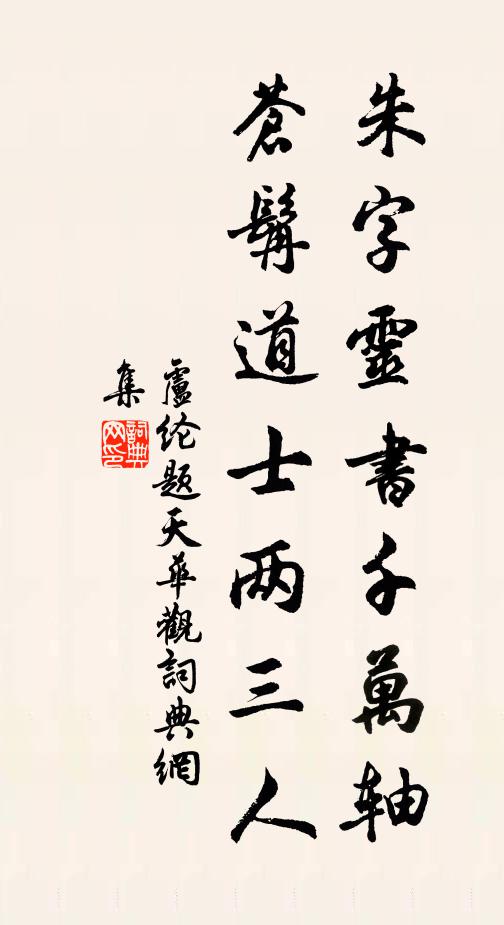 朱字靈書千萬軸
蒼髯道士兩三人
盧纶题天華觀詞典網
集
詞典
网印